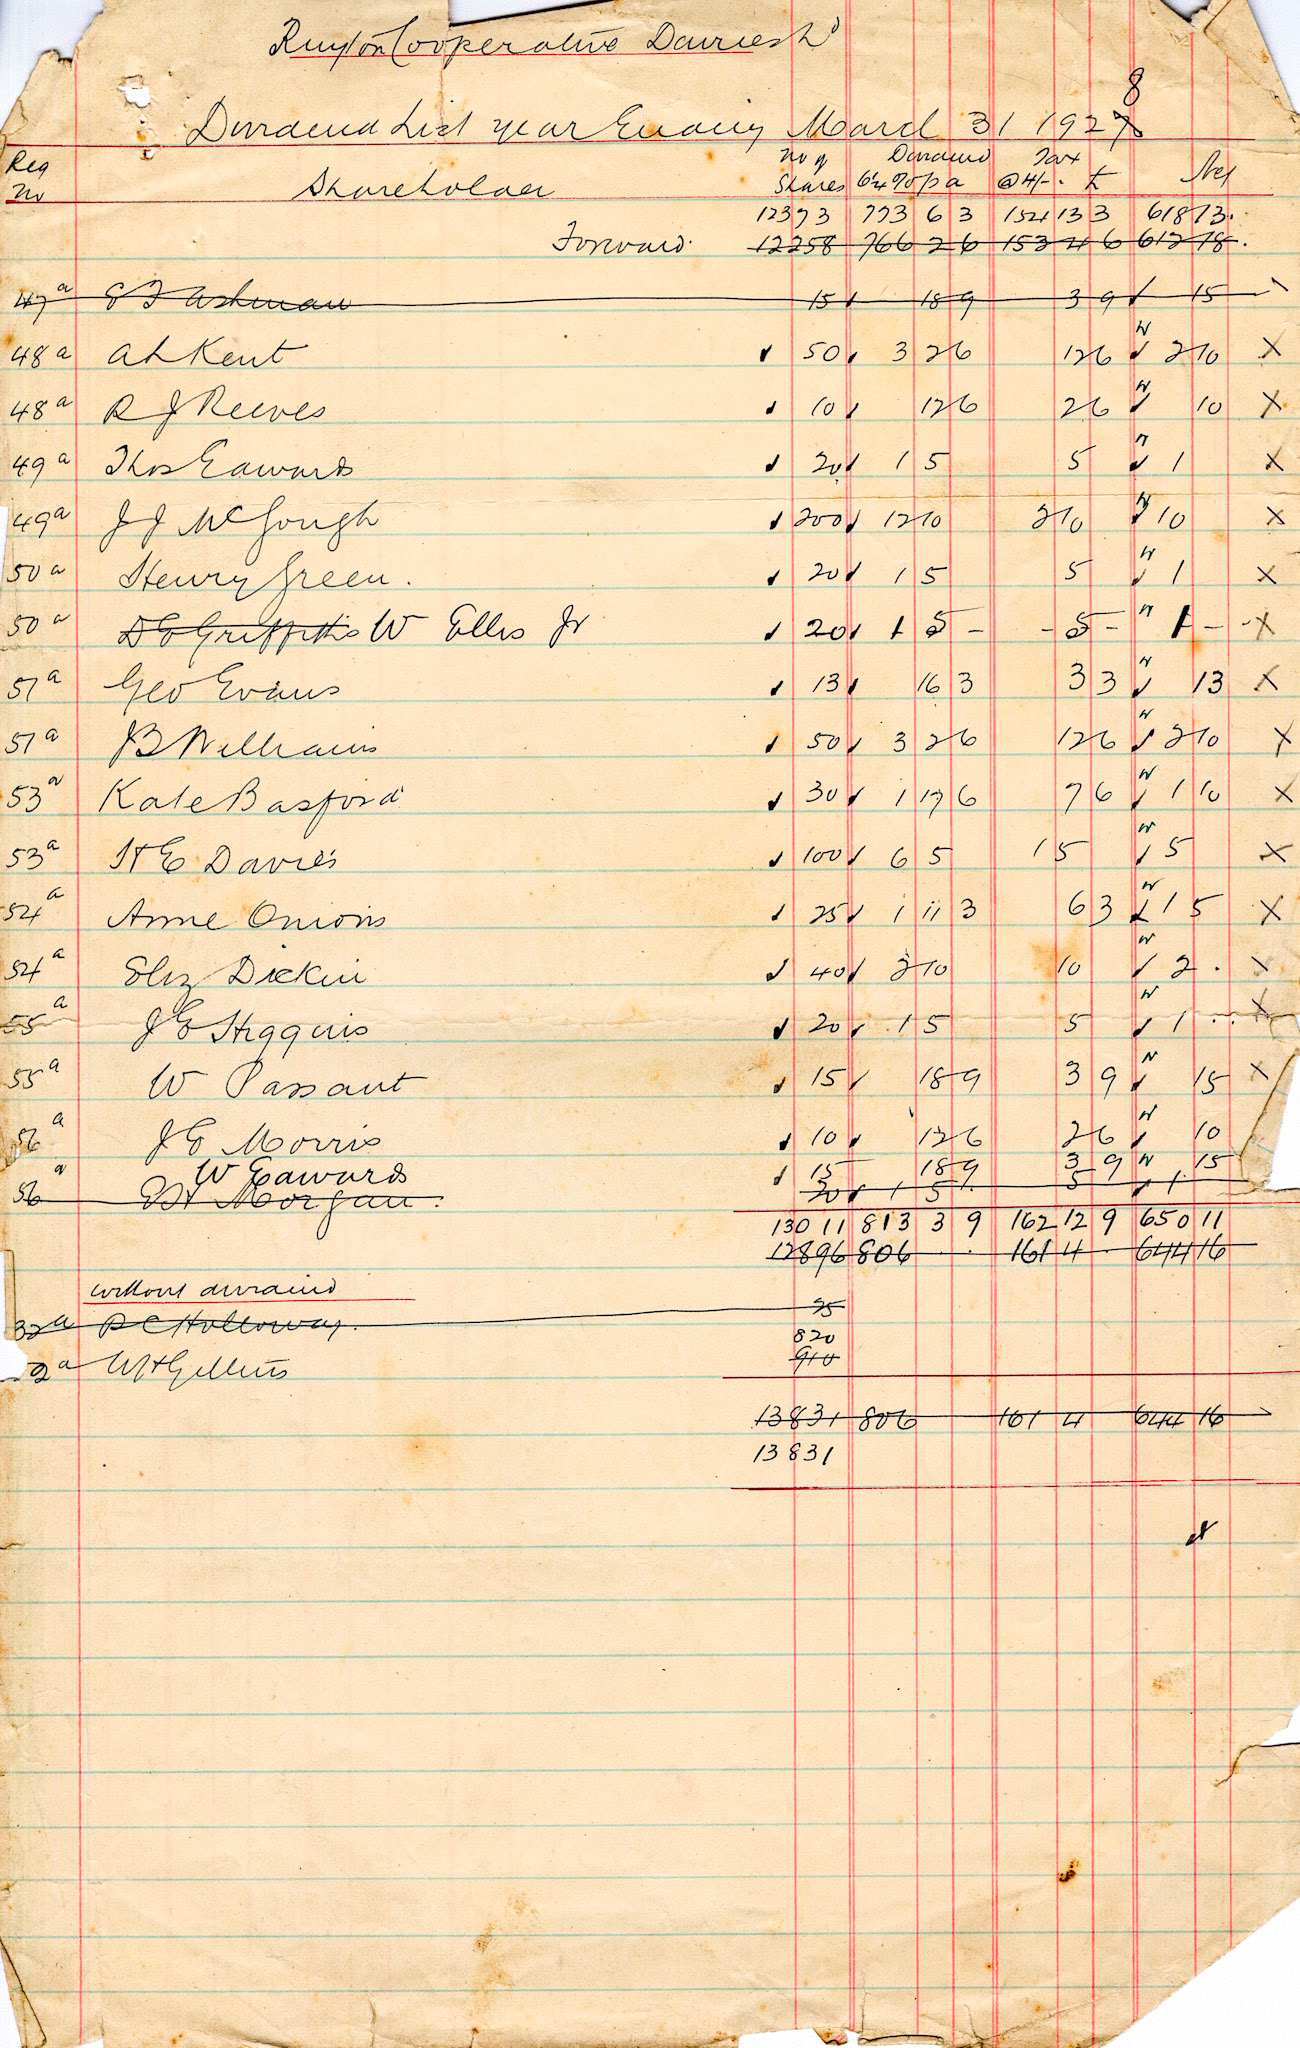 Ruyton Cooperative Dairies Ld
Dividend List year Ending March 31 1927 8
Reg No Shareholder No of Shares Dividend 6¼ % p a Tax @ 4/- £ Net
12373 773 6 3 154 13 3 618 13
Forward 12258 766 2 6 153 4 6 612 18
47a E T Ashman 15 18 9 3 9 15
48a A L Kent 50 3 2 6 12 6 W 2 10 X
48a R J Reeves 10 12 6 2 6 W 10 X
49a Thos Edwards 20 1 5 5 W 1 X
49a J J McGough 200 12 10 2 10 W 10 X
50a Henry Green. 20 1 5 5 W 1 X
50a D E Griffiths W Ellis Jr 20 1 5 - - 5 - W 1 - - X
51a Geo Evans 13 16 3 3 3 W 13 X
51a J B Williams 50 3 2 6 12 6 W 2 10 X
53a Kate Basford 30 1 17 6 7 6 W 1 10 X
53a H E Davies 100 6 5 1 5 W 5 X
54a Anne Onions 25 1 11 3 6 3 W 1 5 X
54a Eliz Dickin 40 2 10 10 W 2 . X
55a J E Higgins 20 1 5 5 W 1 . . X
55a W Passant 15 18 9 3 9 W 15 X
56a J E Morris 10 12 6 2 6 W 10
W Edwards 15 18 9 3 9 W 15
56a E H Morgan. 20 1 5 5 1
13011 813 3 9 162 12 9 650 11
12896 806 . . 161 4 . 644 16
without dividend
32a R C Holloway. 25
820
2a W H Gittins 910
13831 806 161 4 644 16
13831